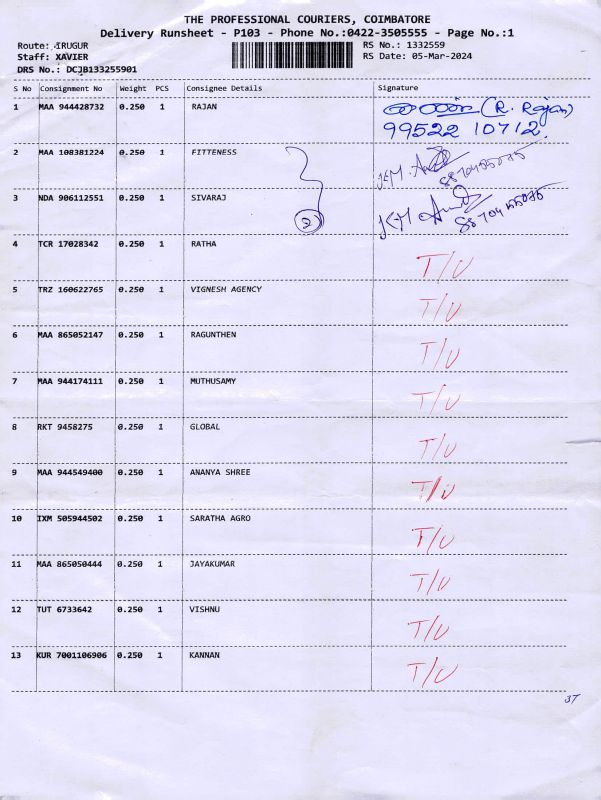 THE PROFESSIONAL COURIERS, COIMBATORE
Delivery Runsheet - P103 - Phone No.:0422-3505555 - Page No.:1
Route: IRUGUR
RS No.: 1332559
Staff: XAVIER
RS Date: 05-Mar-2024
DRS No.: DCJB133255901
S No Consignment No Weight PCS Consignee Details Signature
1 MAA 944428732 0.250 1 RAJAN (R. Rajan)
99522 10712.
2 MAA 108381224 0.250 1 FITTENESS
3 NDA 906112551 0.250 1 SIVARAJ
2
4 TCR 17028342 0.250 1 RATHA T/U
5 TRZ 160622765 0.250 1 VIGNESH AGENCY T/U
6 MAA 865052147 0.250 1 RAGUNTHEN T/U
7 MAA 944174111 0.250 1 MUTHUSAMY T/U
8 RKT 9458275 0.250 1 GLOBAL T/U
9 MAA 944549400 0.250 1 ANANYA SHREE T/U
10 IXM 505944502 0.250 1 SARATHA AGRO T/U
11 MAA 865050444 0.250 1 JAYAKUMAR T/U
12 TUT 6733642 0.250 1 VISHNU T/U
13 KUR 7001106906 0.250 1 KANNAN T/U